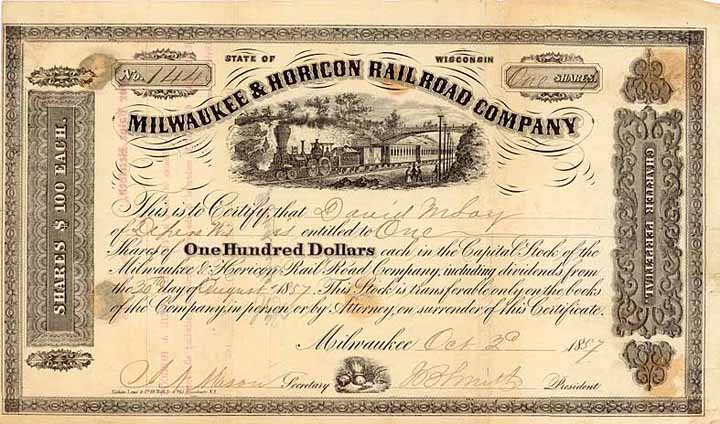 STATE OF WISCONSIN
No. 144
One SHARES
MILWAUKEE & HORICON RAIL ROAD COMPANY
SHARES $ 100 EACH.
CHARTER PERPETUAL.
This is to Certify, that David
of Wis entitled to One
Shares of One Hundred Dollars each in the Capital Stock of the
Milwaukee & Horicon Rail Road Company, including dividends from
the 20 day of August 1857. This Stock is transferable only on the books
of the Company, in person or by Attorney, on surrender of this Certificate.
Milwaukee Oct 3d 1857
Mason Secretary
JB Smith President